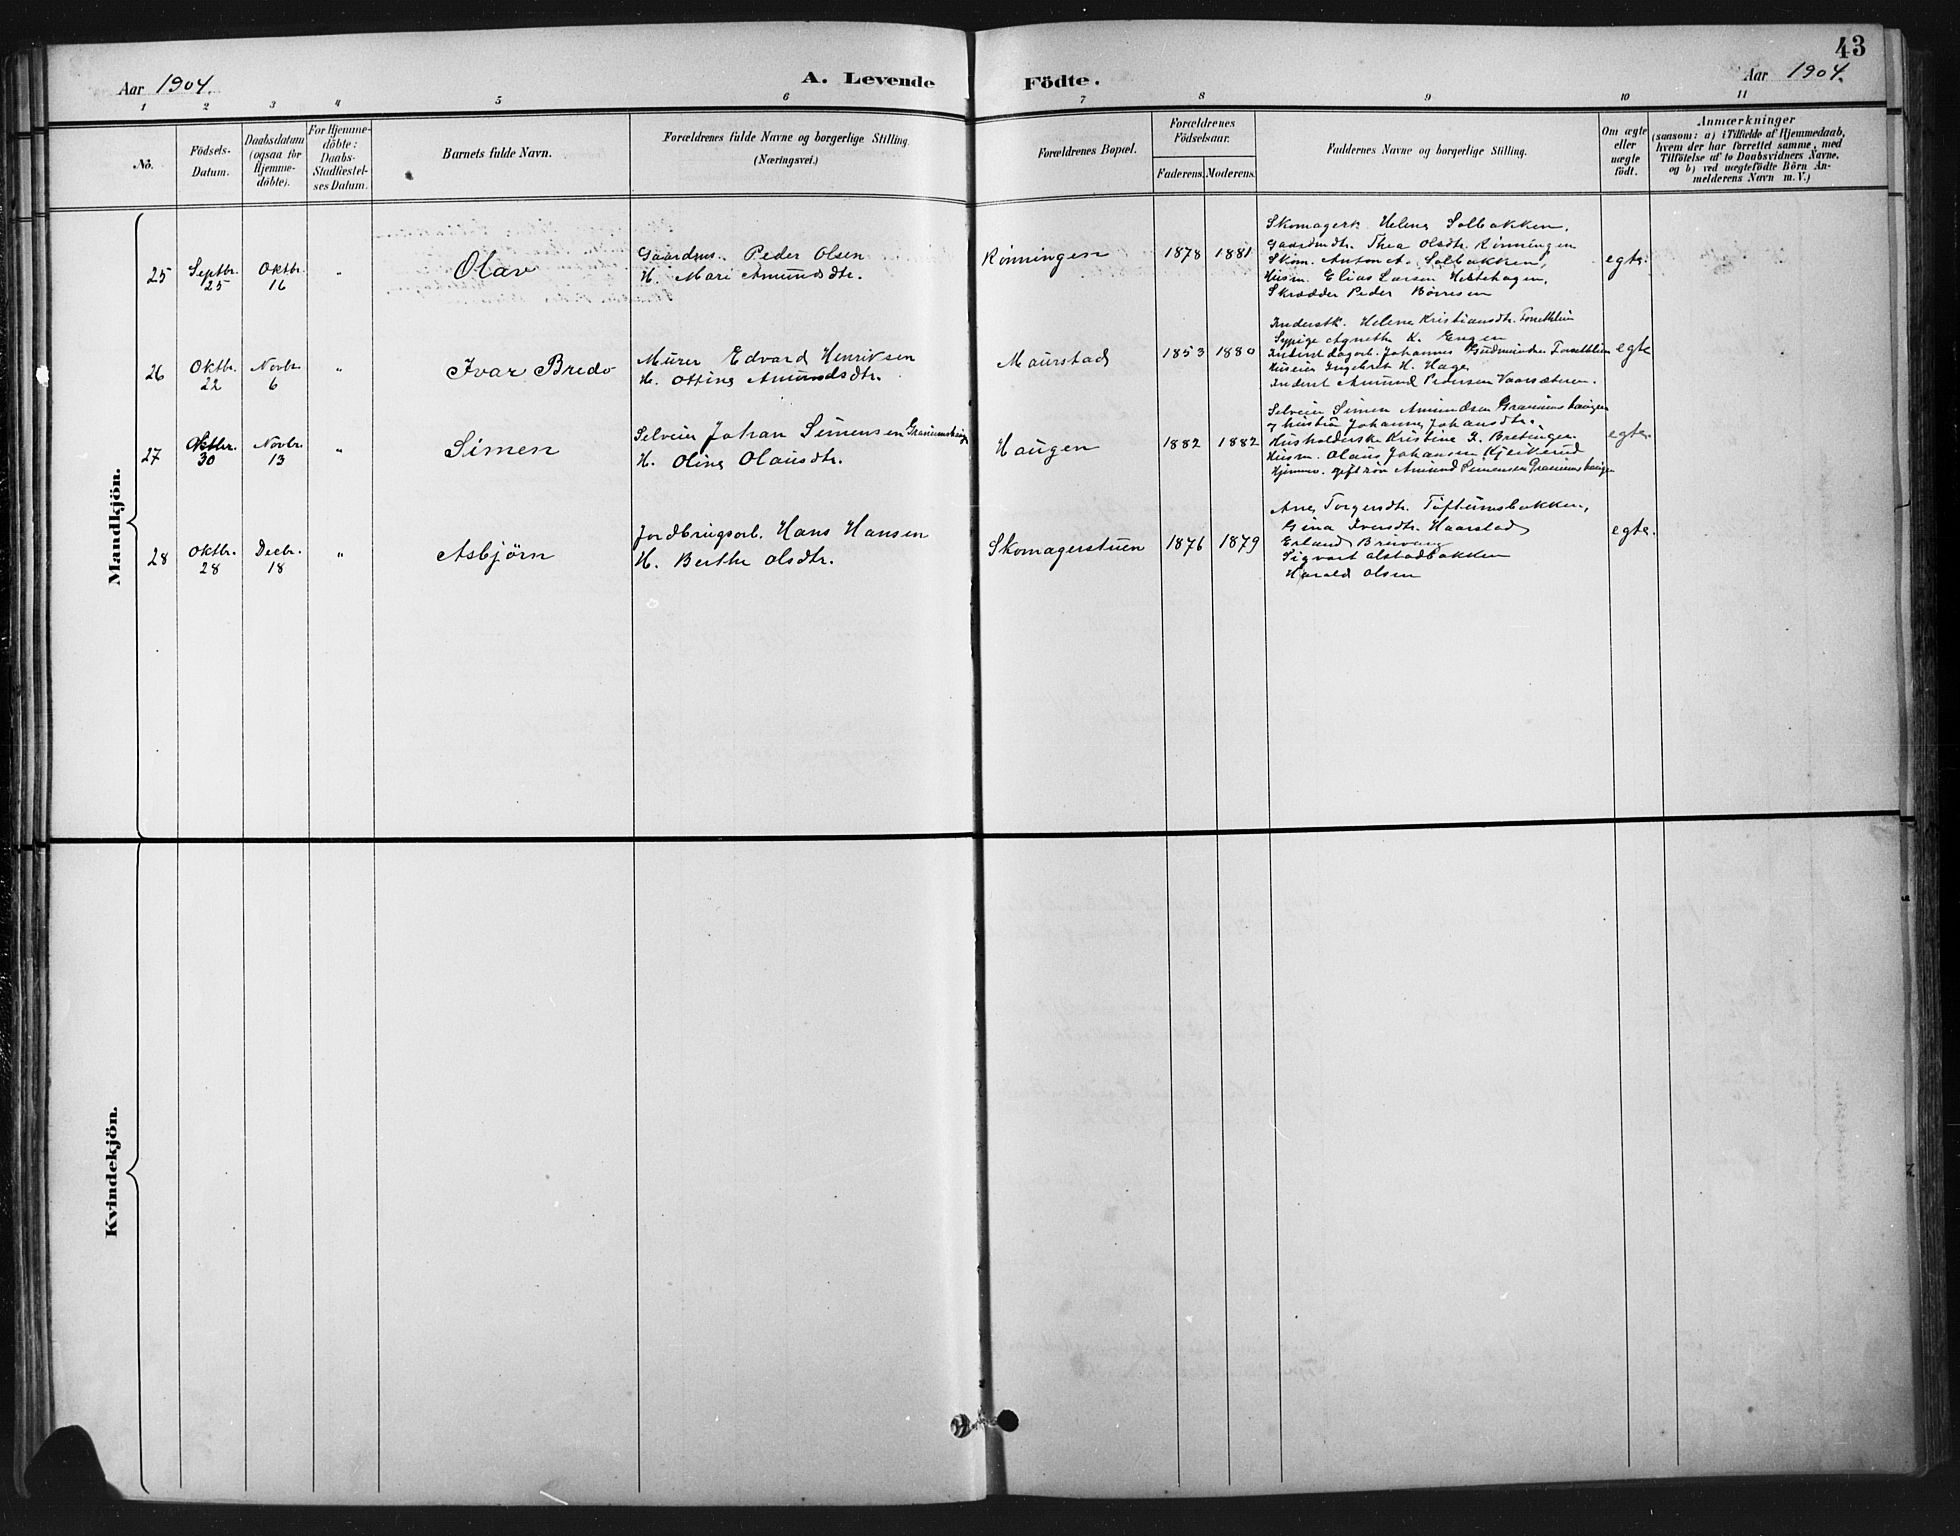 43
Aar 1904.
A. Levende Födte.
Aar 1904.
1 2 3 4 5 6 7 8 9 10 11
No.
Födsels-
Datum.
Daabsdatum
(ogsaa for
Hjemme-
döbte).
For Hjemme-
döbte:
Daabs-
Stadfæstel-
ses Datum.
Barnets fulde Navn.
Forældrenes fulde Navne og borgerlige Stilling.
(Næringsvei.)
Forældrenes Bopæl.
Forældrenes
Födselsaar.
Faderens. Moderens.
Faddernes Navne og borgerlige Stilling.
Om ægte
eller
uægte
födt.
Anmærkninger
(saasom: a) i Tilfælde af Hjemmedaab,
hvem der har forrettet samme, med
Tilföielse af to Daabsvidners Navne,
og b) ved uægtefödte Börn An-
melderens Navn m. V.)
Mandkjön.
25
Septbr.
25
Oktbr.
16
"
Olav
Gaardms. Peder Olsen
H. Mari Amundsdtr.
Rönningen
1878
1881
Skomagerk. Helene Solbakken,
Gaardmdtr. Thea Olsdtr. Rönningen
Skom. Anton A. Solbakken,
Husm. Elias Larsen Hestehagen,
Skrædder Peder Börresen
egte.
26
Oktbr.
22
Novbr.
6
"
Ivar Bredo
Murer Edvard Henriksen
H. Otting Amundsdtr.
Maurstad
1853
1880
Inderstk. Helene Kristiansdtr.
Sypige Agnethe K. Engen
Inderst dagarb. Johannes Gudmundsen
Huseier Ingebret H. Hage
Inderst Amund Pedersen
egte
27
Oktbr.
30
Novbr.
13
"
Simen
Selveier Johan Simensen
H. Oline Olausdtr.
Haugen
1882
1882
Selveier Simen Amundsen
Hustru Johanne Johansdtr.
Husholderske Kristine
Husm. Olaus Johansen Kjeikerud
Hjemmev. gift sön Amund Simensen
egte.
28
Oktbr.
28
Decbr.
18
"
Asbjörn
Jordbrugsarb. Hans Hansen
H. Berthe Olsdtr.
Skomagerstuen
1876
1879
Ane Torgersdtr. Toftumsbakken,
Gina Iversdtr. Haarstad
Erland Bruvang
Sigvart Olstadbakken
Harald Olsen
egte.
Kvindekjön.